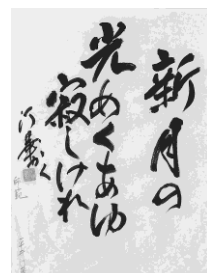 新月の
光めくあゆ
寂しけれ